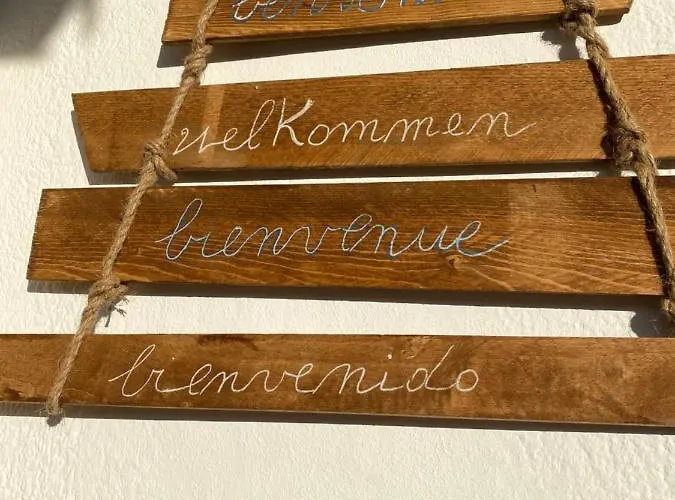 welkommen
bienvenue
bienvenido